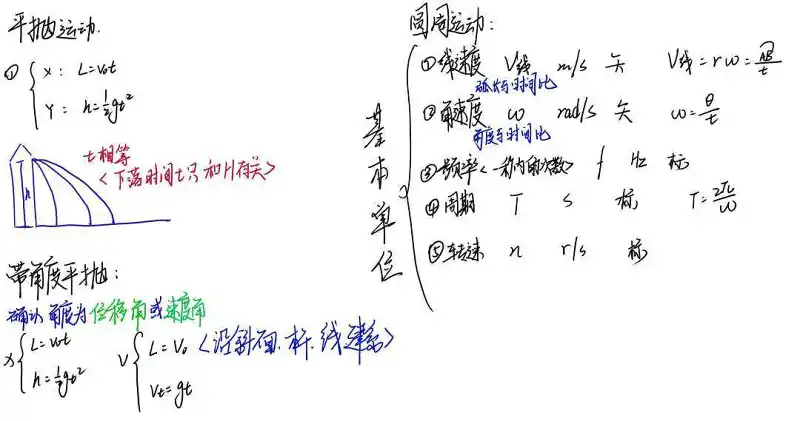 平抛运动.
① { X: L=v₀t
Y: h=½gt²
h
t相等
<下落时间t只和H有关>
带角度平抛:
确认角度为位移角或速度角
X { L=v₀t
h=½gt²
V { L=V₀
Vt=gt
<沿斜面.杆.线建系>
圆周运动:
基本单位
①线速度 V线 m/s 矢 V线=rω=AB/t
弧长与时间比
②角速度 ω rad/s 矢 ω=θ/t
角度与时间比
③频率<一秒内的次数> f Hz 标
④周期 T s 标 T=2π/ω
⑤转速 n r/s 标